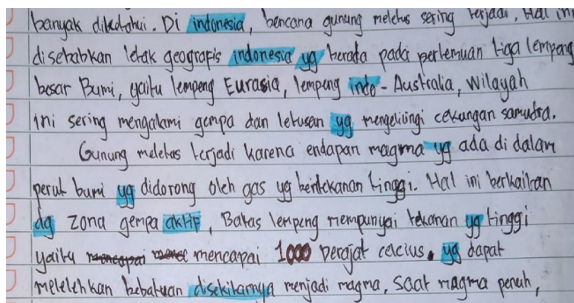 banyak diketahui. Di indonesia, bencana gunung meletus sering terjadi, Hal ini
disebabkan letak geografis indonesia yg berada pada pertemuan tiga lempeng
besar Bumi, yaitu lempeng Eurasia, lempeng indo-Australia, Wilayah
ini sering mengalami gempa dan letusan yg mengelilingi cekungan samudra.
Gunung meletus terjadi karena endapan magma yg ada di dalam
perut bumi yg didorong oleh gas yg bertekanan tinggi. Hal ini berkaitan
dg zona gempa aktif, Batas lempeng mempunyai tekanan yg tinggi
yaitu mencapai 1000 perajat celcius. yg dapat
melelehkan bebatuan disekitarnya menjadi magma, saat magma penuh,